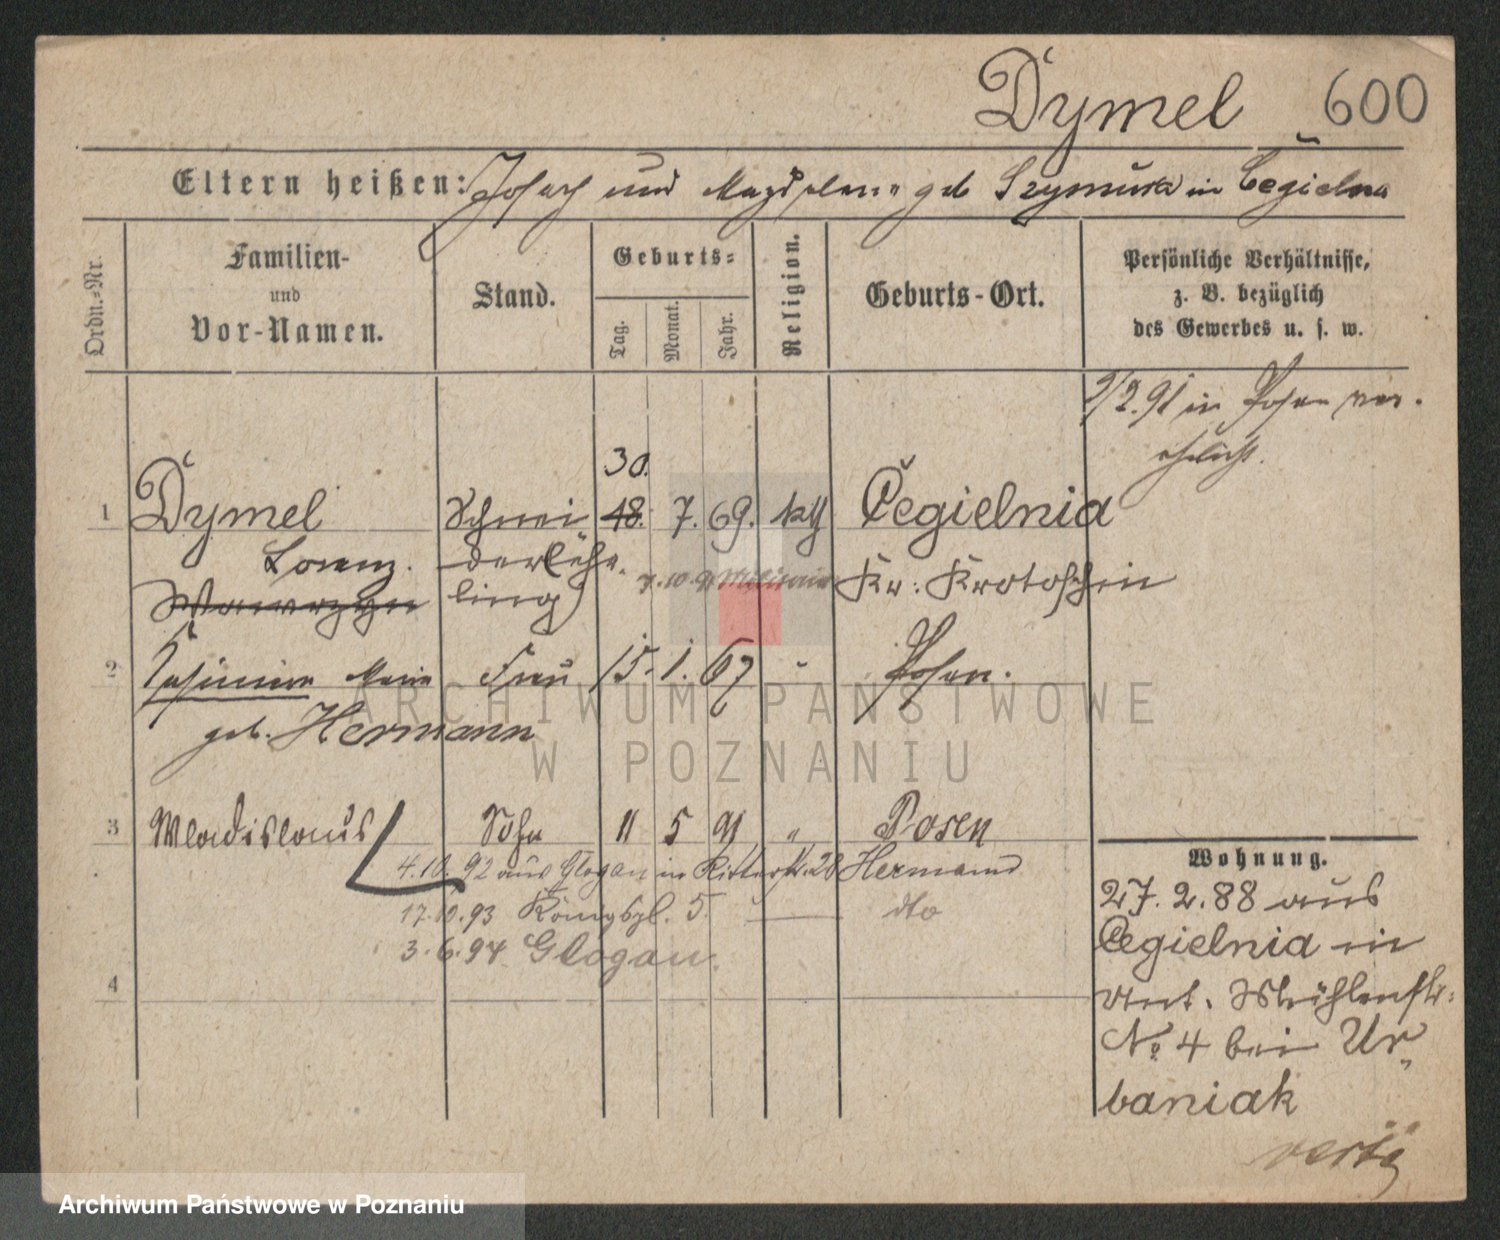 Dymel 600
Eltern heißen: Joseph und Magdalena geb Szymura in Cegielna
Ordn.-Nr.
Familien-
und
Vor-Namen.
Stand.
Geburts-
Tag.
Monat.
Jahr.
Religion.
Geburts-Ort.
Persönliche Verhältnisse,
z. B. bezüglich
des Gewerbes u. s. w.
9/2.91 in Posen ver-
ehelicht.
30.
1 Dymel Schnei 18. 7. 69. kth Cegielnia
Lorenz. derlehr-
7.10.91 Kr: Krotoschin
Wawrzyn ling
2 Casimira Maria Frau 15. 1. 67 " Posen.
geb. Hermann
3 Wladislaus Sohn 11 5 91 " Posen
4.10.92 aus Glogau in Ritterstr. 20 Hermann
17.10.93 Königspl. 5. dto
3.6.94 Glogau.
4
Wohnung.
27.2.88 aus
Cegielnia in
Ant. Mühlenstr:
No 4 bei Ur-
baniak
ARCHIWUM PAŃSTWOWE
W POZNANIU
Archiwum Państwowe w Poznaniu